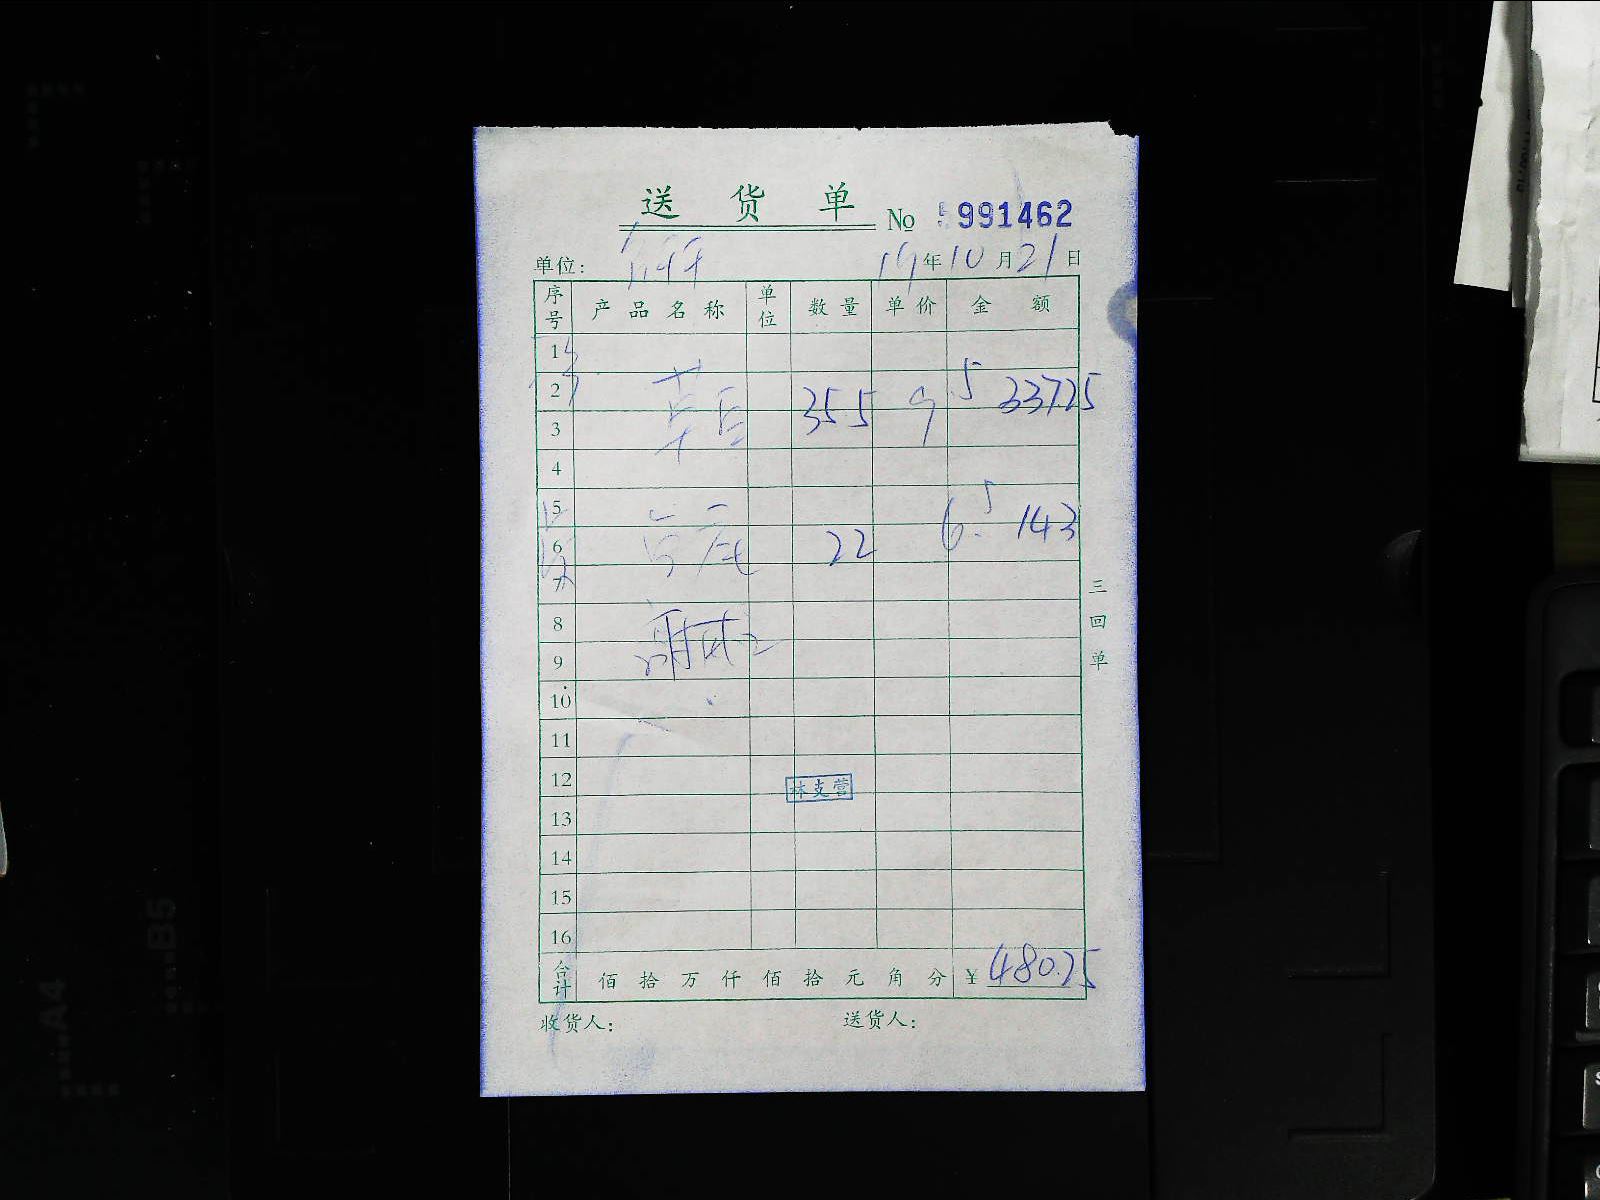 送 货 单 No 991462
单位: 19年10月21日
序号 产品名称 单位 数量 单价 金额
1
2 355 9.5 337.25
3
4
5
6 22 6.5 143
7
8
9
10
11
12
林支营
13
14
15
16
合计 佰 拾 万 仟 佰 拾 元 角 分 ¥ 480.25
收货人: 送货人:
三回单
A4
B5